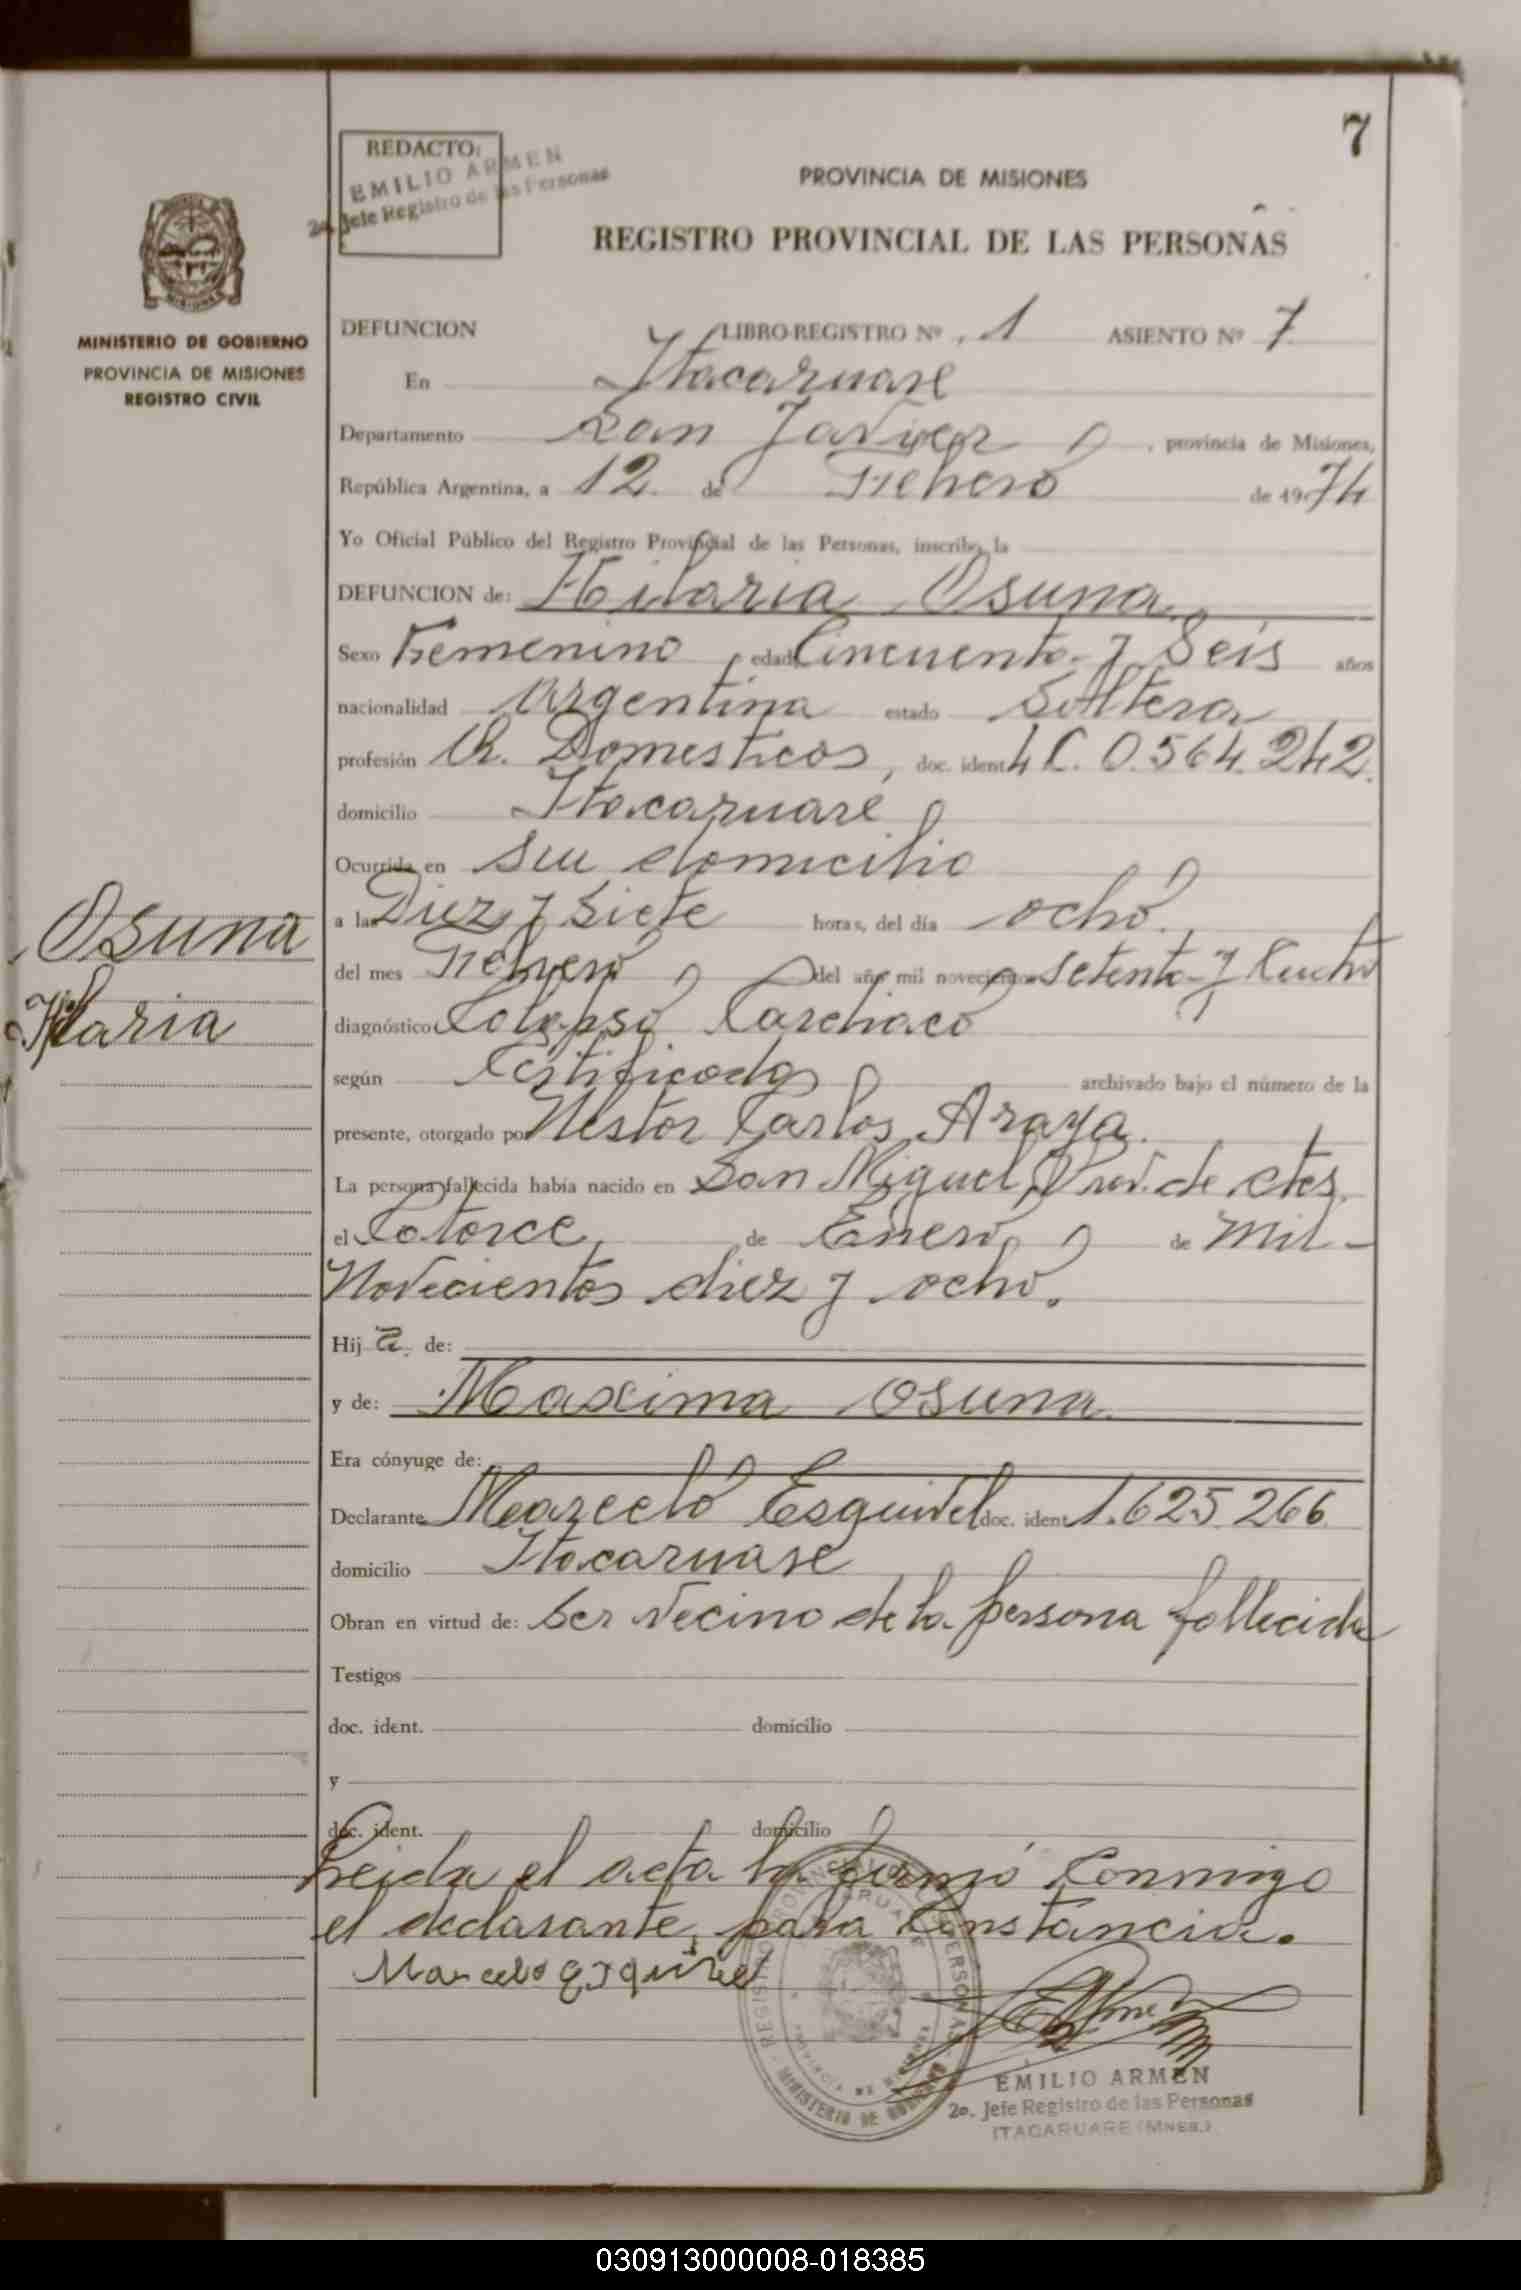 7
REDACTO:
EMILIO ARMEN
2o. Jefe Registro de las Personas
PROVINCIA DE MISIONES
REGISTRO PROVINCIAL DE LAS PERSONAS
MISIONES
MINISTERIO DE GOBIERNO
PROVINCIA DE MISIONES
REGISTRO CIVIL
DEFUNCION LIBRO-REGISTRO Nº 1 ASIENTO Nº 7
En Itacaruare
Departamento San Javier, provincia de Misiones,
República Argentina, a 12 de Febrero de 1974
Yo Oficial Público del Registro Provincial de las Personas, inscribo la
DEFUNCION de: Hilaria Osuna
Sexo Femenino, edad Cincuenta y Seis años
nacionalidad Argentina estado Soltera
profesión Q. Domesticos, doc. ident. L C. 0.564.242.
domicilio Itacaruare
Ocurrida en su domicilio
a las Diez y Siete horas, del día ocho.
del mes Febrero del año mil novecientos setenta y Cuatro
diagnóstico Colapso Cardiaco
según Certificado archivado bajo el número de la
presente, otorgado por Nestor Carlos Araya.
La persona fallecida había nacido en San Miguel, Prov. de Ctes.
el Catorce, de Enero de mil
Novecientos diez y ocho.
Hij a. de:
y de: Maxima Osuna
Era cónyuge de:
Declarante Marcelo Esquivel doc. ident. 1.625.266
domicilio Itacaruare
Obran en virtud de: Ser vecino de la persona fallecida
Testigos
doc. ident. domicilio
y
doc. ident. domicilio
Leida el acta la firmó Conmigo
el declarante, para Constancia.
Marcelo Esquivel
Osuna
Hilaria
REGISTRO PROVINCIAL DE LAS PERSONAS
PROVINCIA DE MISIONES
MINISTERIO DE GOBIERNO
EMILIO ARMEN
2o. Jefe Registro de las Personas
ITACARUARE (MNES.)
030913000008-018385